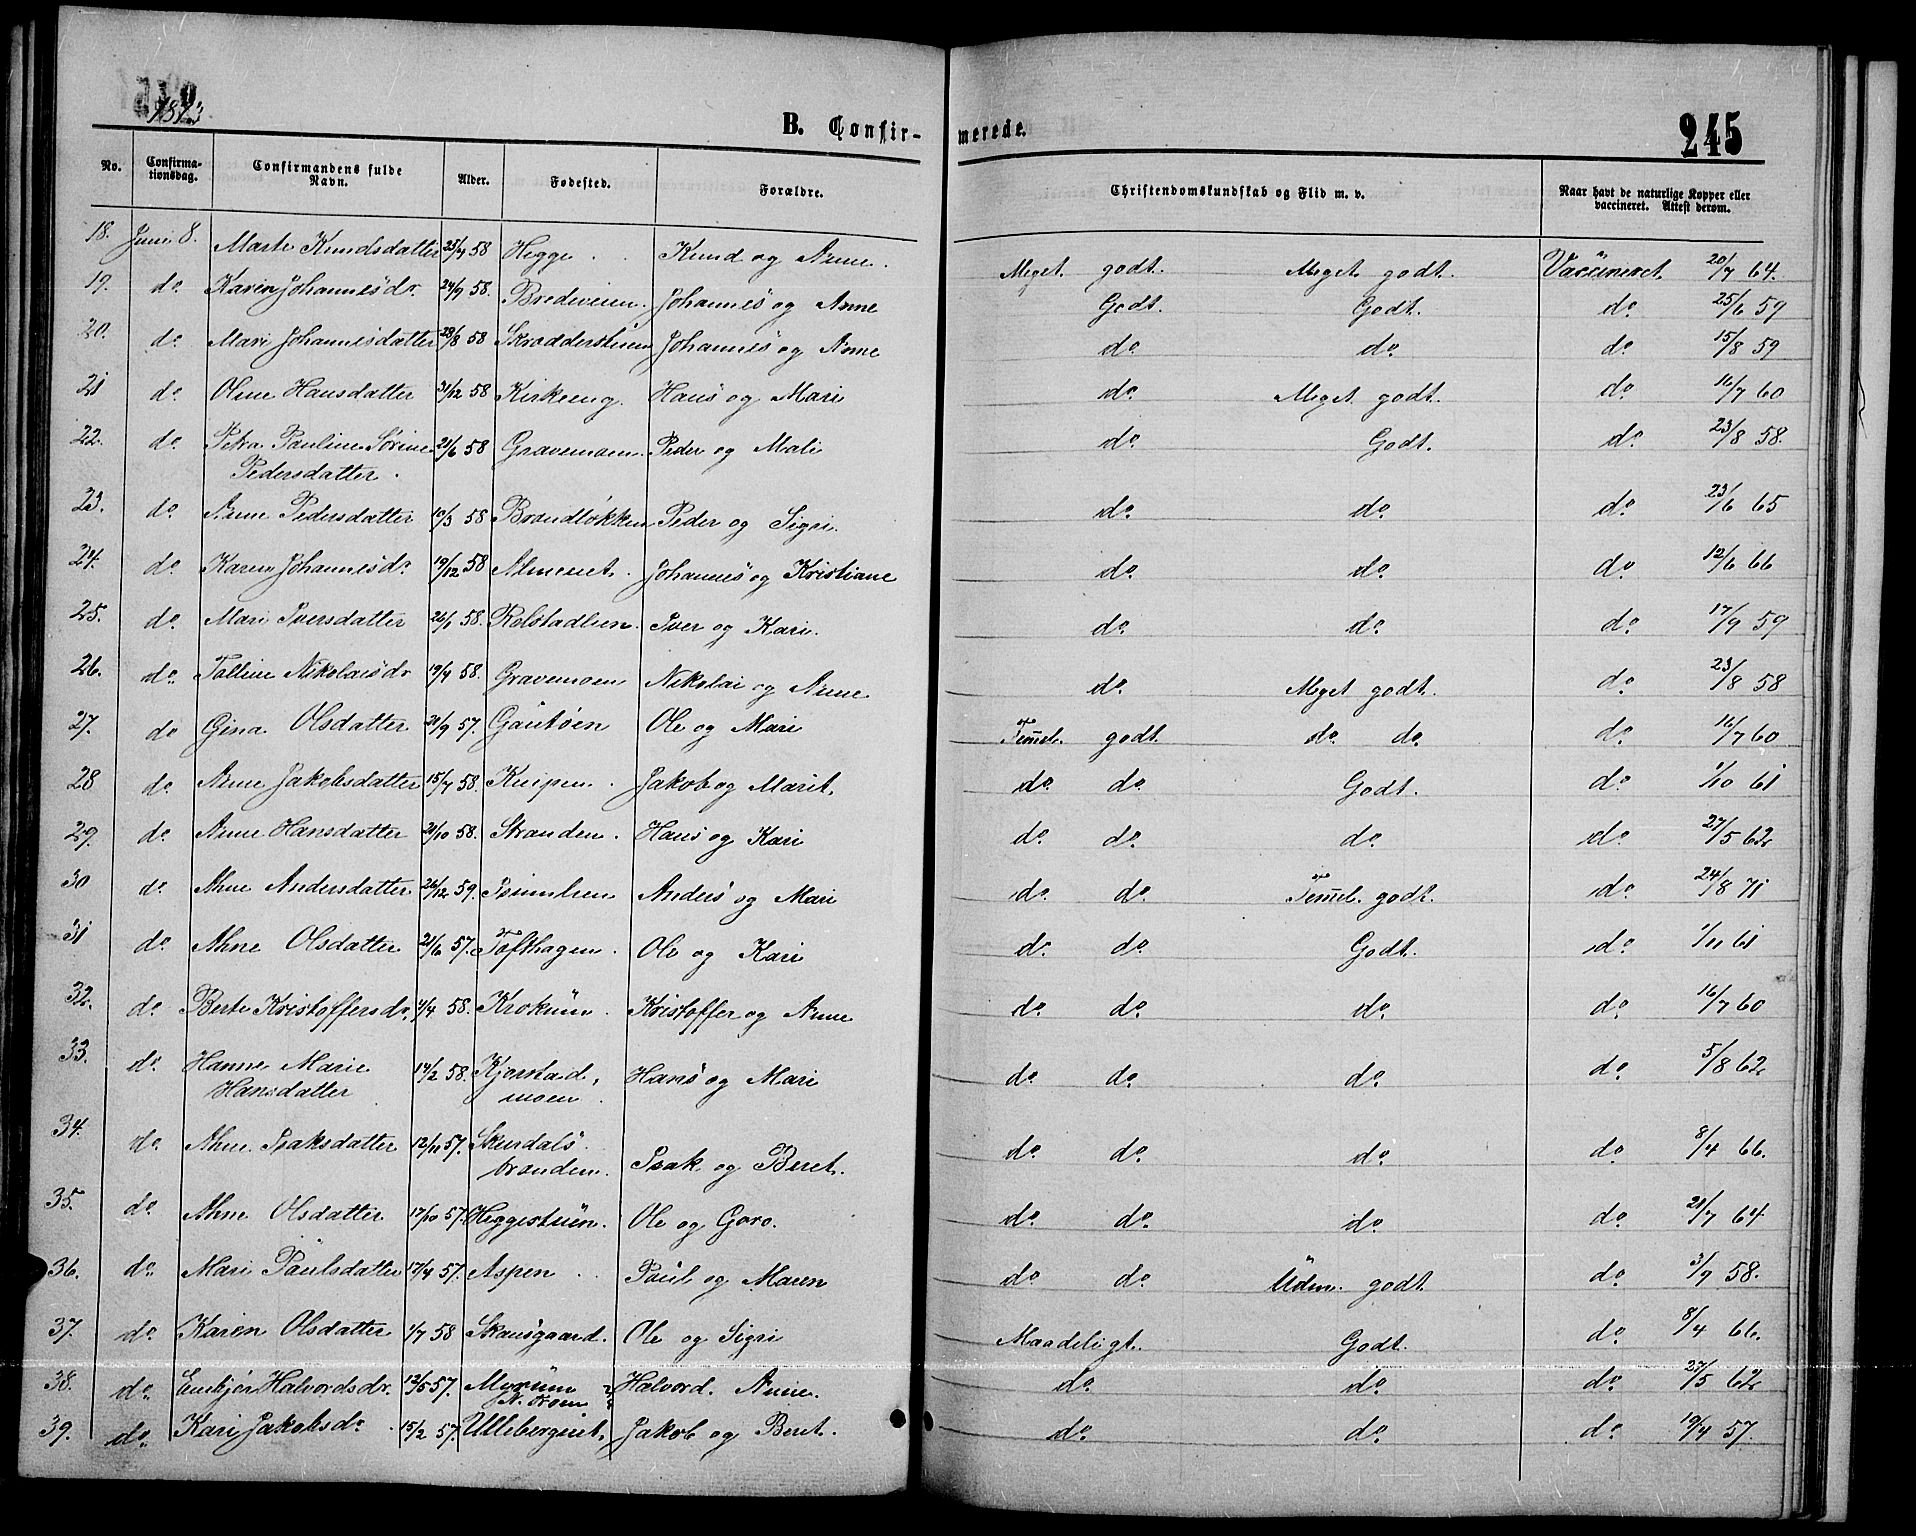 1873.
B. Confir-
merede.
245
No. Confirma-tionsdag. Confirmandens fulde Navn. Alder. Fødested. Forældre. Christendomskundskab og Flid m. v. Naar havt de naturlige Kopper eller vaccineret. Attest derom.
18. Juni 8. Marte Knudsdatter 25/4 58 Hegge. Knud og Anne. Meget godt. Meget godt. Vaccineret 20/7 64.
19. do. Karen Johannesdr. 24/9 58. Bredeveien. Johannes og Anne Godt. Godt. do. 25/6 59
20. do. Mari Johannesdatter 28/8 58 Johannes og Anne do. do. do. 15/8 59
21 do. Oline Hansdatter 31/12 58 Kirkeeng. Hans og Mari do. Meget godt. do. 16/7 60
22. do. Petra Pauline Sørine 21/6 58 Gravemoen. Peder og Mali do. Godt. do. 23/8 58.
Pedersdatter.
23. do. Anne Pedersdatter 10/3 58 Brandløkken Peder og Sigri. do. do. do. 23/6 65
24. do. Karen Johannesdr. 19/12 58 Almenet. Johannes og Kristiane do. do. do. 12/6 66
25. do. Mari Iversdatter 58. Rolstadlien. Iver og Kari. do. do. do. 17/9 59
26. do. Tolline Nikolaisdr 19/4 58. Gravemoen Nikolai og Anne do. Meget godt. do. 23/8 58
27. do Gina Olsdatter 21/9 57. Ole og Mari Temel. godt do. do. do. 16/7 60
28 do. Anne Jakobsdatter 15/7 58. Knipen. Jakob og Marit. do. do. Godt. do. 1/10 61
29. do. Anne Hansdatter 21/10 58. Stranden. Hans og Kari do. do. do. do. 27/5 62
30 do. Ahne Andersdatter 26/12 59. Anders og Mari do. do. Temel. godt. do. 24/8 71
31 do. Ahne Olsdatter 21/6 57. Tofthagen. Ole og Kari do. do. Godt. do. 1/11 61
32. do. Berte Kristoffersdr. 1/4 58. Krokum. Kristoffer og Anne do. do. do. do. 16/7 60
33. do. Hanne Marie 14/2 58. Kjorstad, Hans og Mari do. do. do. do. 5/8 62
Hansdatter moen.
34. do. Ahne Isaksdatter 12/11 57. Skurdals Isak og Beret. do. do. do. do. 8/4 66.
branden.
35. do. Ahne Olsdatter 17/10 57. Heggestuen. Ole og Goro. do. do. do. do. 21/7 64
36. do. Mari Paulsdatter 17/4 57. Aspen. Paul og Maren do. do. Udm. godt do. 3/9 58.
37. do. Karen Olsdatter 1/7 58 Skansgaard. Ole og Sigri Maadeligt. Godt. do. 8/4 66.
38. do. Embjør Halvordsdr. 12/5 57. Myrum Halvord. Anne. do. do. do. 27/5 62
N. From
39. do. Kari Jakobsdr. 15/2 57. Ullebergeiet. Jakob og Beret. do. do. do. 19/4 57.